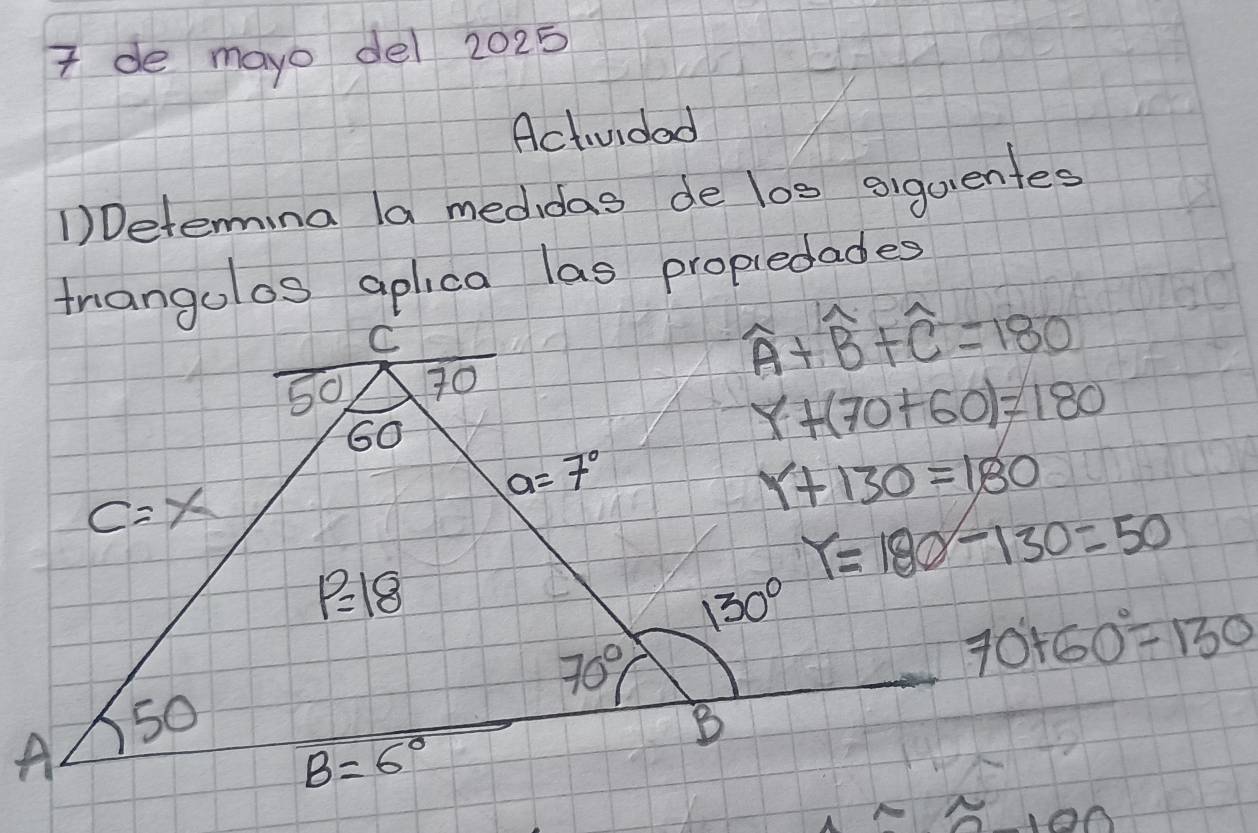 7 de mayo del 2025
Actividad
1) Determina la medidas de los siguientes
triangulos aplica las propiedades
C
50 70
60
a=7°
C=X
P=18
130°
70°
50
A
B
B=6°
Â+B̂+Ĉ=180
Y+(70+60)=180
Y+130=180
Y=180-130=50
70+60°=130